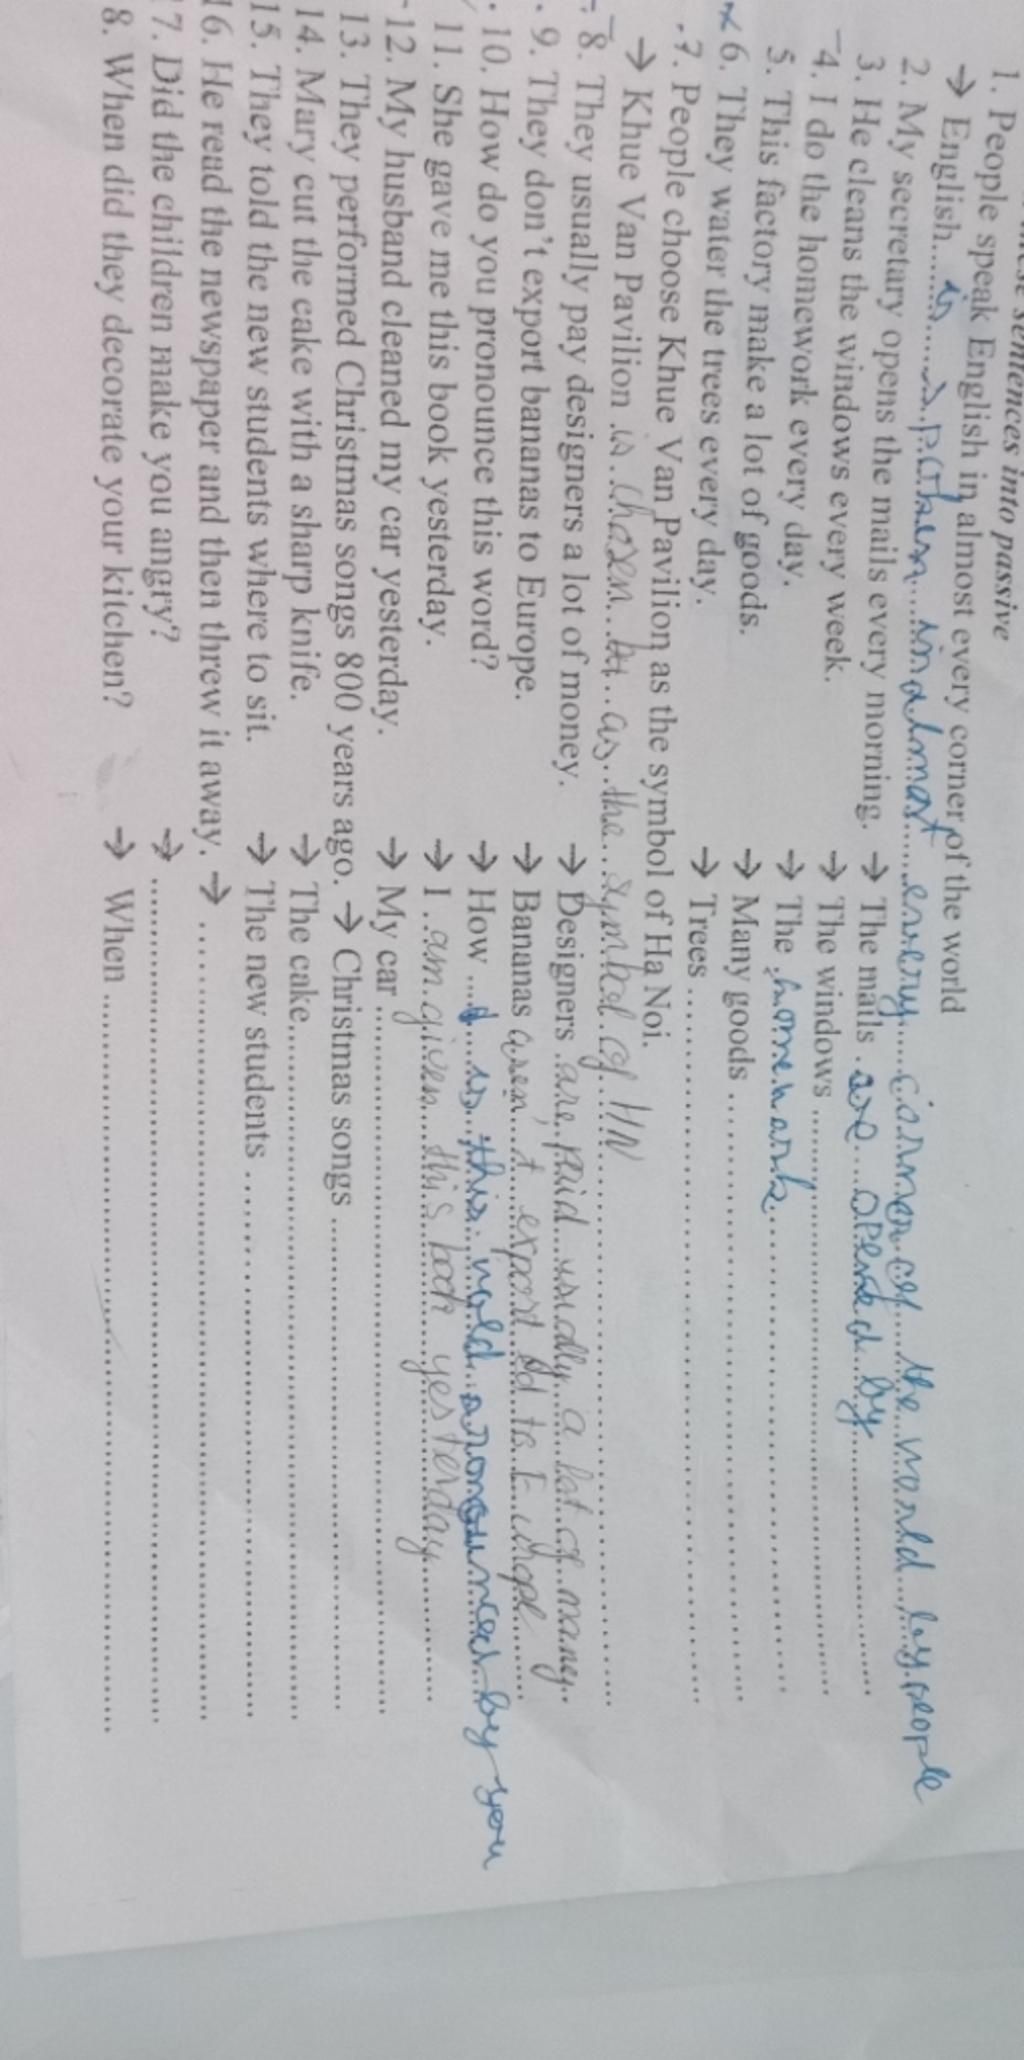 these sentences into passive
1. People speak English in almost every corner of the world
→ English is spoken in almost every corner of the world by people
2. My secretary opens the mails every morning. → The mails are opened by
3. He cleans the windows every week. → The windows
4. I do the homework every day. → The homework
5. This factory make a lot of goods. → Many goods
6. They water the trees every day. → Trees
7. People choose Khue Van Pavilion as the symbol of Ha Noi.
→ Khue Van Pavilion is chosen as the symbol of HN
8. They usually pay designers a lot of money. → Designers are paid usually a lot of money.
9. They don't export bananas to Europe. → Bananas aren't export to
10. How do you pronounce this word? → How is this by you
11. She gave me this book yesterday. → I am given this book yesterday
12. My husband cleaned my car yesterday. → My car
13. They performed Christmas songs 800 years ago. → Christmas songs
14. Mary cut the cake with a sharp knife. → The cake
15. They told the new students where to sit. → The new students
16. He read the newspaper and then threw it away. →
17. Did the children make you angry? →
8. When did they decorate your kitchen? → When